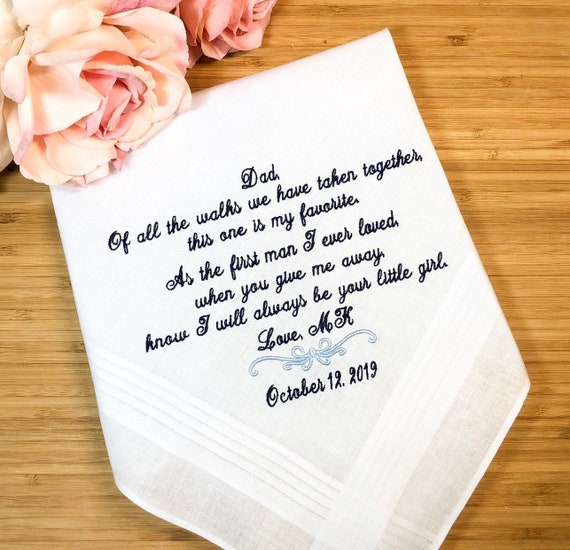 Dad,
Of all the walks we have taken together,
this one is my favorite.
As the first man I ever loved,
when you give me away,
know I will always be your little girl.
Love, MK
October 12, 2019